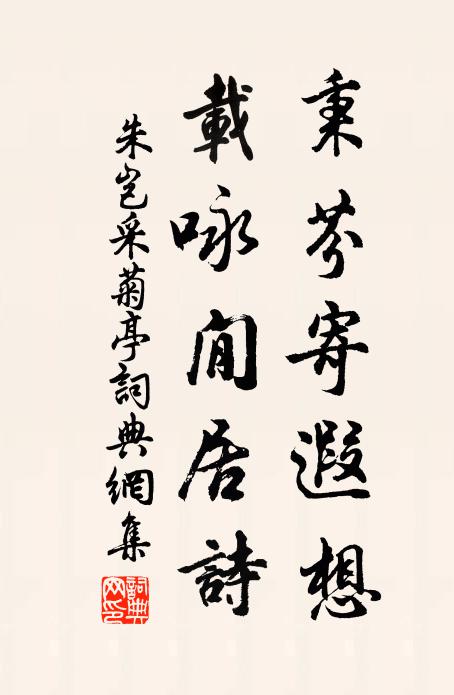 秉芬寄遐想
載咏閒居詩
朱岂采菊亭詞典網集
詞典網印